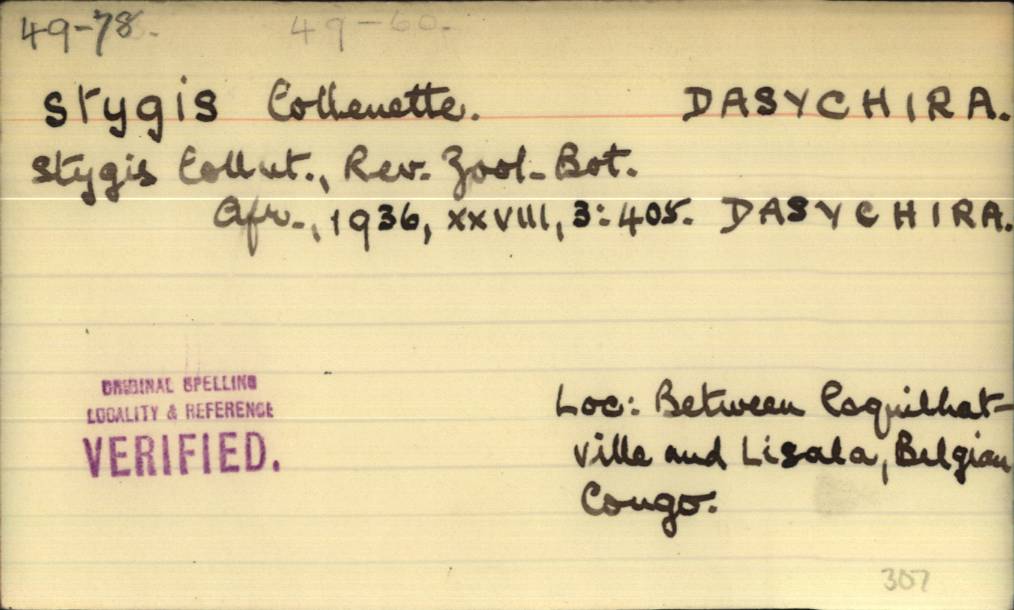 49-78. 49-60.
stygis Collenette. DASYCHIRA.
stygis Collnt., Rev. Zool. Bot.
Afr., 1936, XXVIII, 3:405. DASYCHIRA.
ORIGINAL SPELLING
LOCALITY & REFERENCE
VERIFIED.
Loc: Between Coquilhat-
ville and Lisala, Belgian
Congo.
307